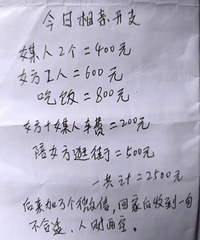 今日相亲开支
媒人2个=400元
女方1人=600元
吃饭=800元
女方+媒人车费=200元
陪女方逛街=500元
一共计=2500元
后来加了个微信，回家后收到一句
不合适，人财两空。